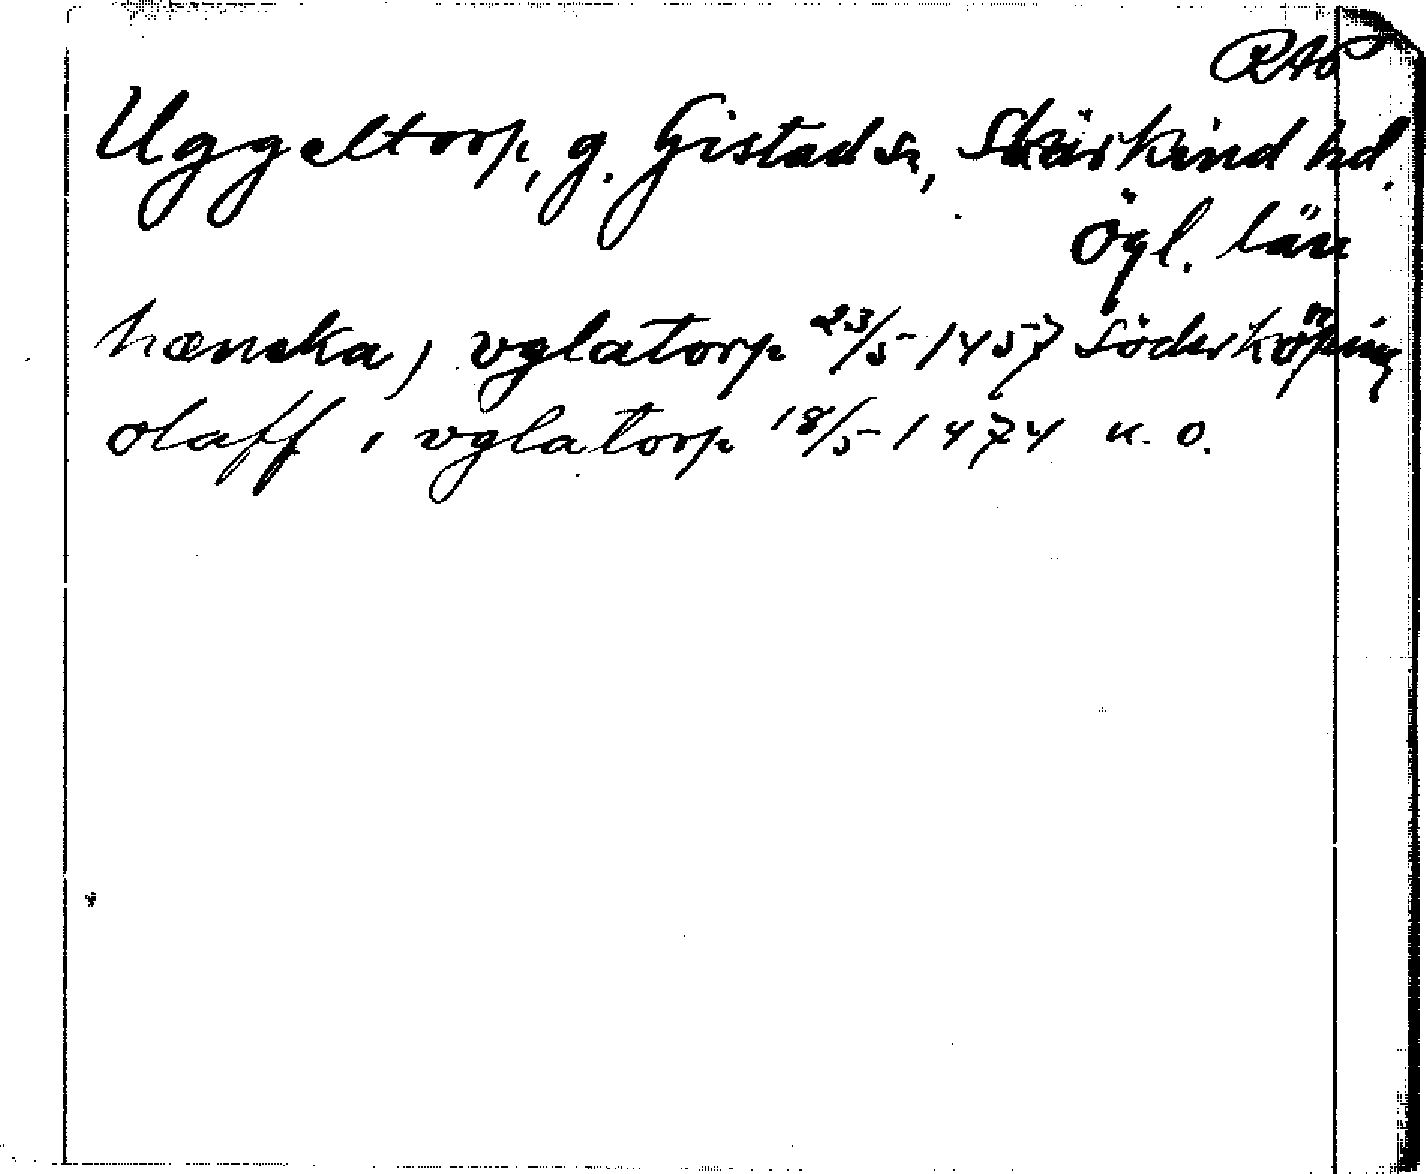 RAp
Uggeltorp, g. Gistad sn, Skärkind hd.
Ögl. län
hæneka j vglatorp 23/5 1457 Söderköping
olaff i vglatorp 18/5 1474 u. o.